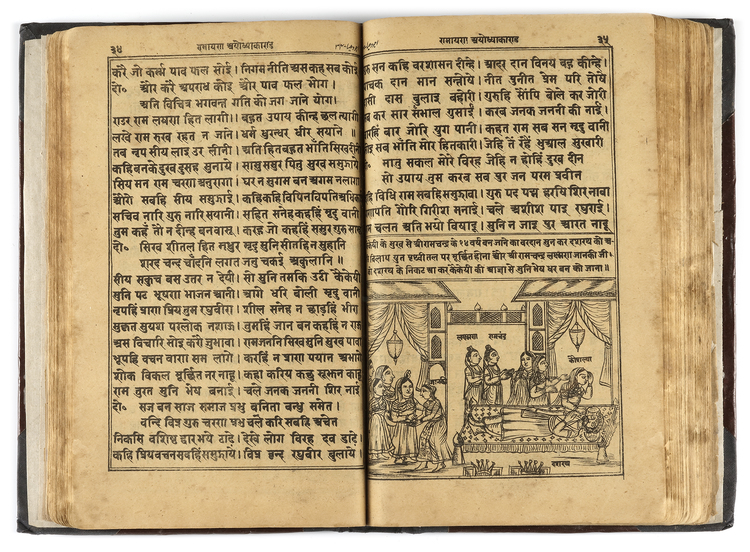 ३४ रामायण अयोध्याकाण्ड
करै जो कर्म्म पाव फल सोई । निगम नीति अस कह सब कोई
दो० और करै अपराध कोइ और पाव फल भोग ।
अति विचित्र भगवन्त गति को जग जानै योग ।
राउर राम लषण हित लागी । बहुत उपाय कीन्ह छल त्यागी
लखे राम रुख रहत न जाने । धर्म धुरन्धर धीर सयाने ॥
तब नृप सीय लाइ उर लीनी । अति हित बहुत भाँति सिख दीनी
कहि बन के दुख दुसह सुनाये । सासु ससुर पितु सुख समुझाये
सिय मन राम चरण अनुरागा । घर न सुगम बन अगम न लागा
औरौ सबहि सीय समुझाई । कहि कहि विपिन विपति अधिकाई
सचिव नारि गुरु नारि सयानी । सहित सनेह कहहिं मृदु वानी
तुम कहँ तौ न दीन्ह बनवासू । करहु जो कहहिं ससुर गुरु सासू
दो० सिख शीतल हित मधुर मृदु सुनि सीतहि न सुहानि
शरद चन्द चाँदनि लगत जनु चकई अकुलानि ॥
सीय सकुच बस उतर न देयी । सो सुनि तमकि उठी कैकेयी
मुनि पट भूषण भाजन आनी । आगे धरि बोली मृदु वानी
नृपहिं प्राण प्रिय तुम रघुबीरा । शील सनेह न छाड़हिं भीरा
सुकृत सुयश परलोक नशाऊ । तुमहिं जान बन कहहिं न राऊ
अस विचारि सोइ करौ जु भावा । राम जननि सिख सुनि सुख पावा
भूपहि वचन बाण सम लागे । करहिं न प्राण पयान अभागे
शोक विकल मूर्छित नर नाहू । कहा करिय कछु सूझ न काहू
राम तुरत मुनि भेष बनाई । चले जनक जननी शिर नाई
दो० सज बन साज समाज प्रभु बनिता बन्धु समेत ।
वन्दि विप्र गुरु चरण प्रभु चले करि सबहि अचेत
निकसि वशिष्ठ द्वार भये ठाढे । देखे लोग विरह दव डाढे
कहि प्रिय वचन सबहिं समुझाये । विप्र वृन्द रघुबीर बुलाये
रामायण अयोध्याकाण्ड ३५
सन कहि वरशासन दीन्हे । आदर दान विनय बहु कीन्हे ।
दान मान सन्तोषे । मीत पुनीत प्रेम परि तोषे
दास बुलाइ बहोरी । गुरुहि सौंपि बोले कर जोरी
कर सार संभाल गुसाई । करब जनक जननी की नाई ।
बार जोरि युग पानी । कहत राम सब सन मृदु वानी
सब भाँति मोर हितकारी । जेहि तें रहैं भुआल सुखारी
मातु सकल मोरे विरह जेहि न होहिं दुख दीन
सो उपाय तुम करब सब पुर जन परम प्रवीन
विधि राम सबहि समुझावा । गुरु पद पद्म हरषि शिर नावा
गौरि गिरीश मनाई । चले अशीश पाइ रघुराई ।
चलत अति भयो विषादू । सुनि न जाइ पुर आरत नादू
के मुख से श्रीरामचन्द्र के १४ वर्ष बन जाने का वरदान सुन कर दशरथ का
पृथ्वीतल पर मूर्छित होना और श्रीरामचन्द्र लक्ष्मण जानकी जी
दशरथ के निकट आ कर कैकेयी की आज्ञा से मुनि भेष धर बन को जाना ॥
लक्ष्मण रामचन्द्र
कौशल्या
दशरथ